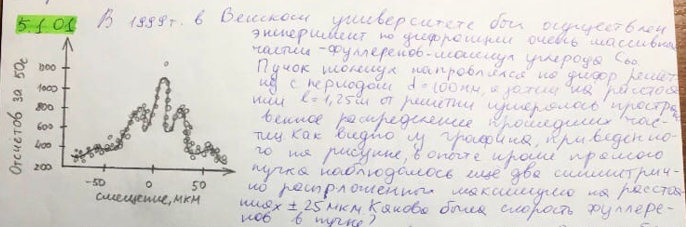 5.1.01
В 1999г. в Венском университете был осуществлен
эксперимент по дифракции очень массивных
частиц-фуллеренов-молекул углерода C₆₀.
Пучок молекул направлялся на дифр. решет
ку с периодом d = 100нм, а затем на расстоя
нии l = 1,25м от решетки измерялось простра
венное распределение прошедших час-
тиц. Как видно из графика, приведенно-
го на рисунке, в опыте кроме прямого
пучка наблюдалось ещё два симметрич-
но расположенных максимума на расстоя-
ниях ± 25 мкм. Какова была скорость фуллере-
нов в пучке?
Отсчетов за 50с
1000
800
600
400
200
-50
0
50
смещение, мкм